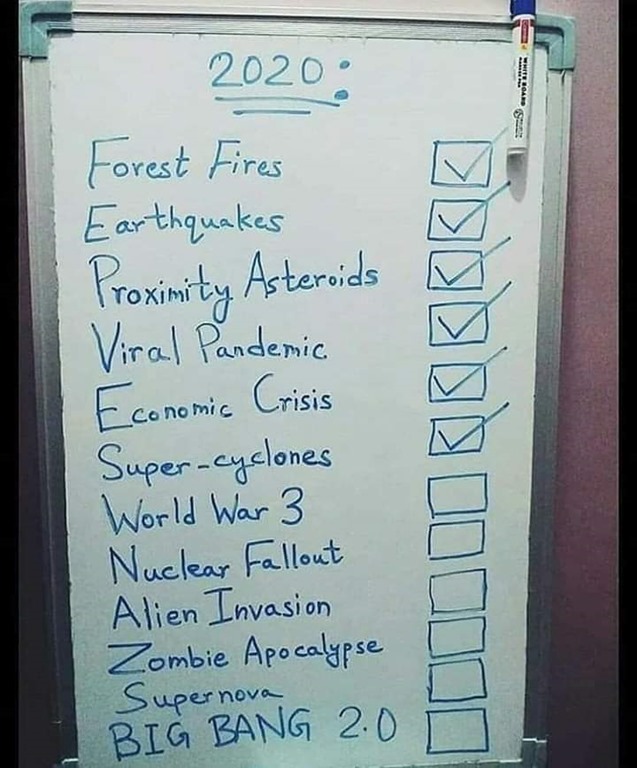 2020:
Forest Fires
Earthquakes
Proximity Asteroids
Viral Pandemic
Economic Crisis
Super-cyclones
World War 3
Nuclear Fallout
Alien Invasion
Zombie Apocalypse
Supernova
BIG BANG 2.0
WHITE BOARD